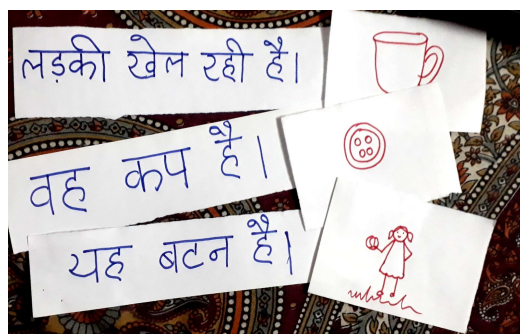 लड़की खेल रही है।
वह कप है।
यह बटन है।